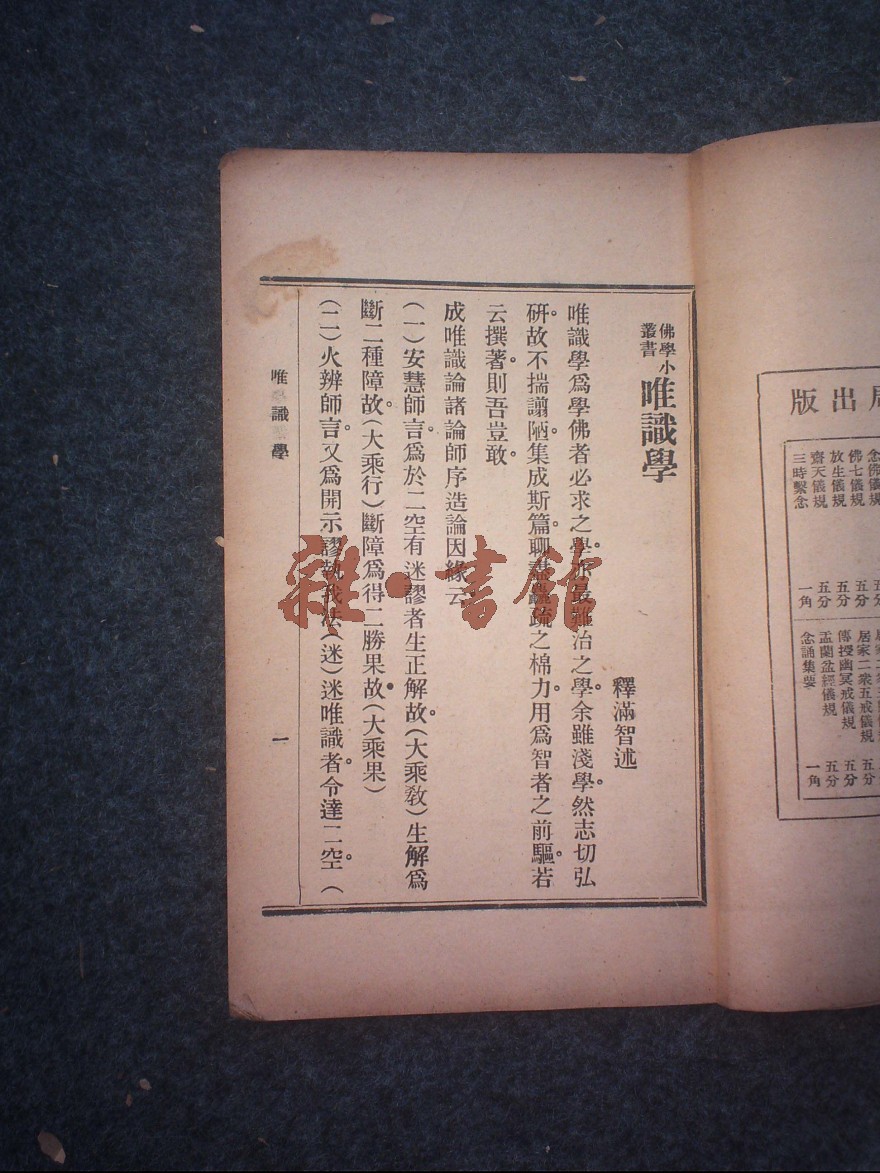 局出版
念佛儀規
佛七儀規
五分
放生儀規
五分
齋天儀規
五分
三時繫念
一角
居家二衆五戒儀規
傳授幽冥戒儀規
五分
盂蘭盆經儀規
五分
念誦集要
一角
佛學小叢書
唯識學
釋滿智述
唯識學爲學佛者必求之學。亦最難治之學。余雖淺學。然志切弘
研。故不揣譾陋。集成斯篇。聊盡蠡疏之棉力。用爲智者之前驅。若
云撰著。則吾豈敢。
成唯識論諸論師序造論因緣云
(一)安慧師言。爲於二空有迷謬者生正解故。(大乘敎)生解爲
斷二種障故。(大乘行)斷障爲得二勝果故。(大乘果)
(二)火辨師言。又爲開示謬執我法(迷)迷唯識者。令達二空。(
唯識學
一
雜·書館